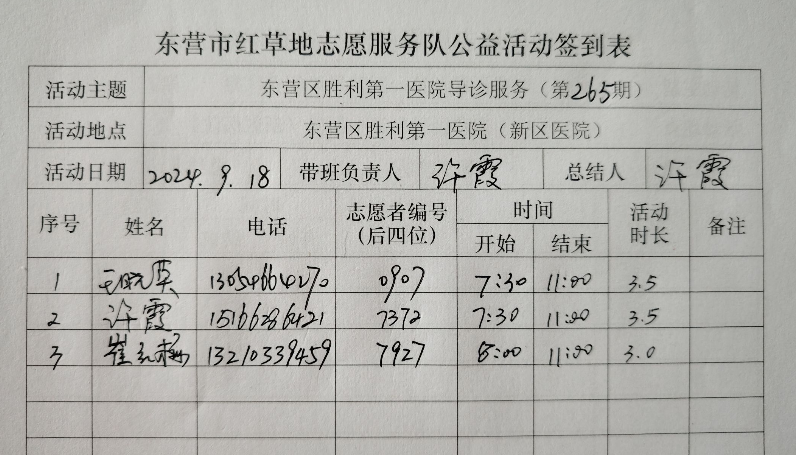 东营市红草地志愿服务队公益活动签到表
活动主题 东营区胜利第一医院导诊服务（第265期）
活动地点 东营区胜利第一医院（新区医院）
活动日期 2024.9.18 带班负责人 许霞 总结人 许霞
序号 姓名 电话 志愿者编号（后四位） 时间 开始 结束 活动时长 备注
1 13054664270 0907 7:30 11:00 3.5
2 许霞 15166286421 7372 7:30 11:00 3.5
3 崔 13210339459 7927 8:00 11:00 3.0